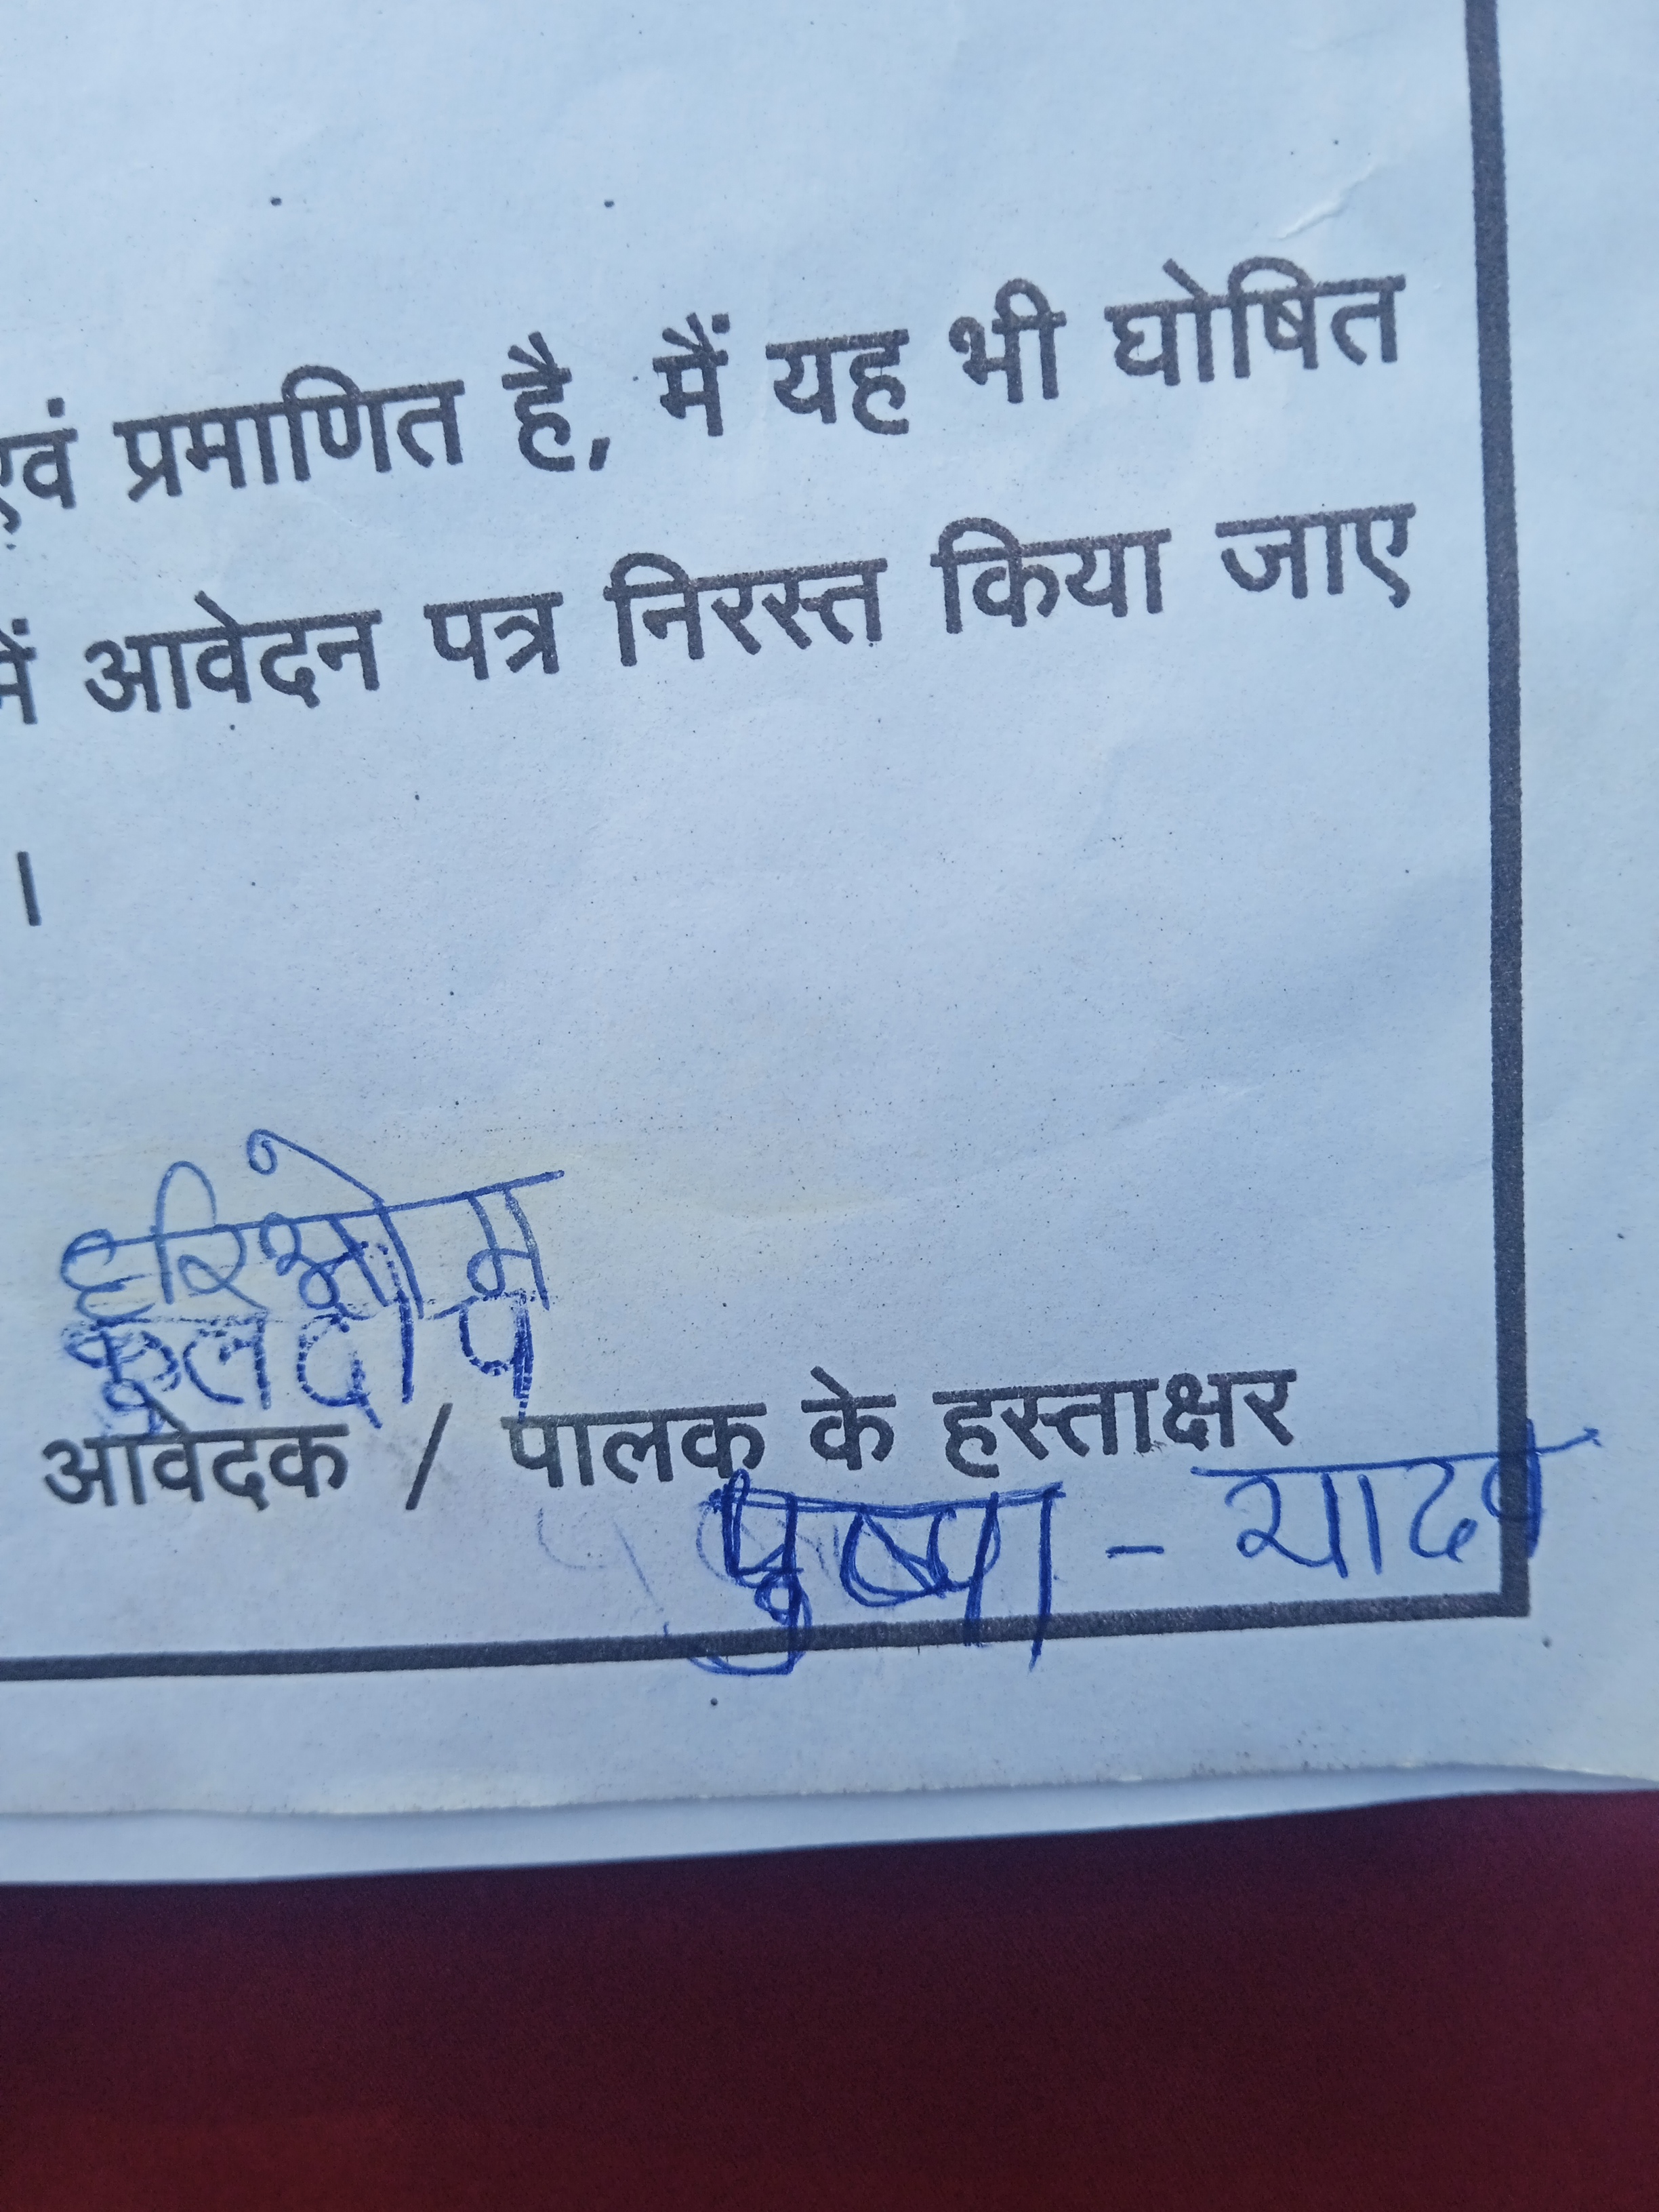 एवं प्रमाणित है, मैं यह भी घोषित
में आवेदन पत्र निरस्त किया जाए
।
हरिओम
कुलदीप
आवेदक / पालक के हस्ताक्षर
पुष्पा - यादव